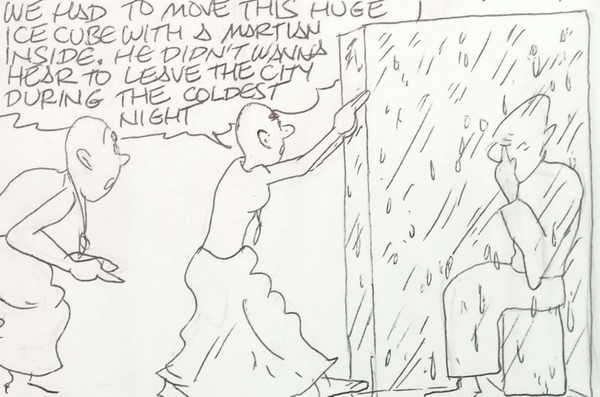 WE HAD TO MOVE THIS HUGE
ICE CUBE WITH A MARTIAN
INSIDE. HE DIDN'T WANNA
HEAR TO LEAVE THE CITY
DURING THE COLDEST
NIGHT